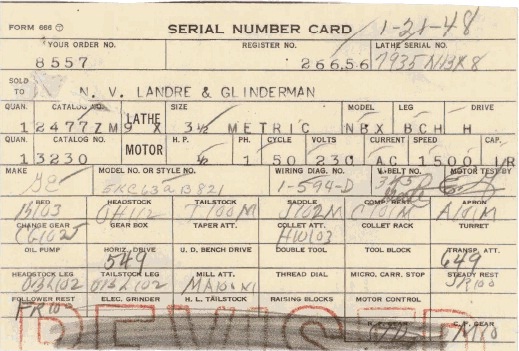 FORM 666 SERIAL NUMBER CARD 1-21-48
YOUR ORDER NO. REGISTER NO. LATHE SERIAL NO.
8557 26656 7935 NBX8
SOLD TO N. V. LANDRE & GLINDERMAN
QUAN. CATALOG NO. LATHE SIZE MODEL LEG DRIVE
1 2477ZM9 X 3½ METRIC NBX BCH H
QUAN. CATALOG NO. MOTOR H. P. PH. CYCLE VOLTS CURRENT SPEED CAP.
1 3230 ½ 1 50 230 AC 1500 I/R
MAKE MODEL NO. OR STYLE NO. WIRING DIAG. NO. V-BELT NO. MOTOR TEST BY
GE 5KC63 13821 1-594-D
BED HEADSTOCK TAILSTOCK SADDLE COMP. REST APRON
B103 OH112 T100M S102M C101M A101M
CHANGE GEAR GEAR BOX TAPER ATT. COLLET ATT. COLLET RACK TURRET
CG102S HW103
OIL PUMP HORIZ. DRIVE U. D. BENCH DRIVE DOUBLE TOOL TOOL BLOCK TRANSP. ATT.
549 649
HEADSTOCK LEG TAILSTOCK LEG MILL ATT. THREAD DIAL MICRO. CARR. STOP STEADY REST
MA101N1 SR100
FOLLOWER REST ELEC. GRINDER H. L. TAILSTOCK RAISING BLOCKS MOTOR CONTROL
FR100
C. P. GEAR
REVISED